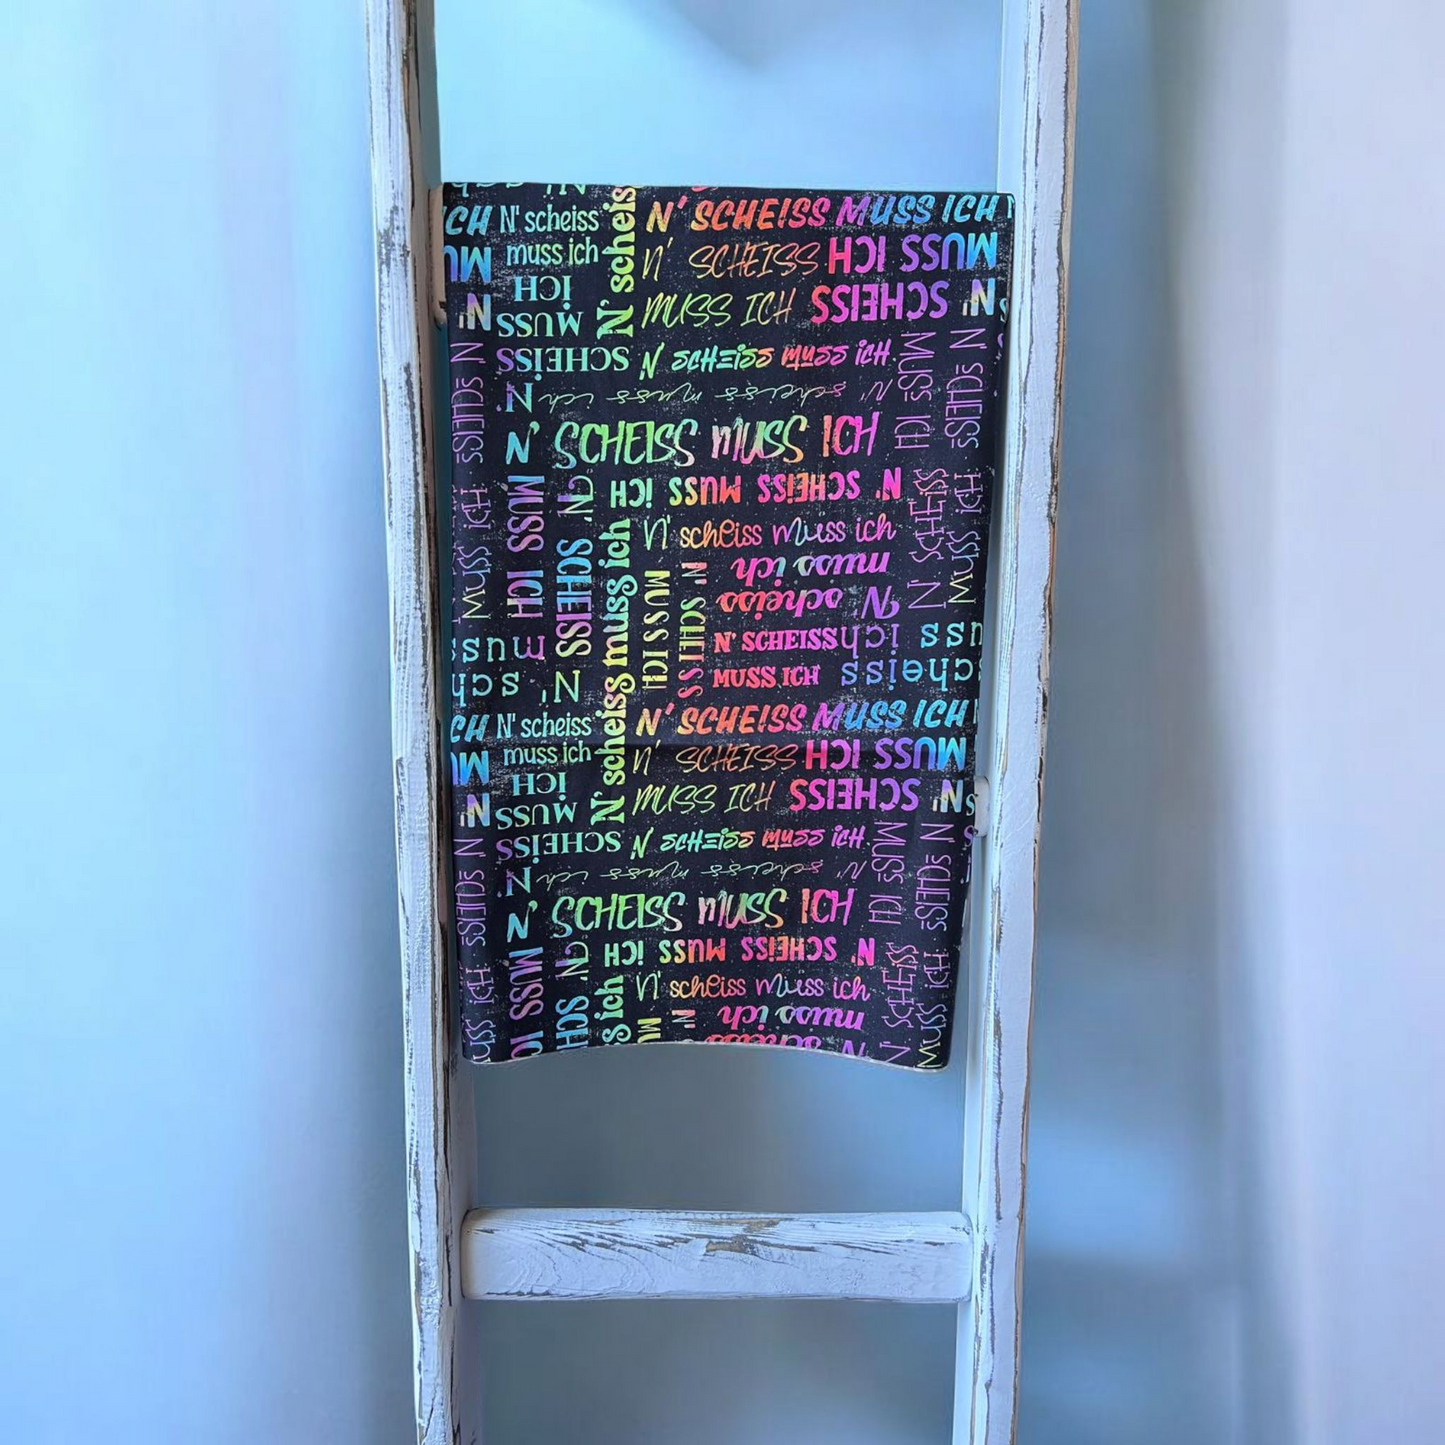 ICH N' scheiss N' SCHEISS MUSS ICH
muss ich N' SCHEISS MUSS ICH
MUSS ICH MUSS ICH N' SCHEISS
N' SCHEISS N' SCHEISS MUSS ICH
N' scheiss muss ich
N' SCHEISS MUSS ICH
N' SCHEISS MUSS ICH
N' scheiss muss ich
N' scheiss muss ich
N' SCHEISS
MUSS ICH
N' scheiss muss ich
MUSS ICH
N' SCHEISS
N' scheiss muss ich
MUSS ICH N' SCHEISS
N' SCHEISS MUSS ICH
N' SCHEISS MUSS ICH
N' SCHEISS MUSS ICH
ICH N' scheiss N' SCHEISS MUSS ICH
muss ich N' SCHEISS MUSS ICH
MUSS ICH MUSS ICH N' SCHEISS
N' SCHEISS N' SCHEISS MUSS ICH
N' scheiss muss ich
N' SCHEISS MUSS ICH
N' SCHEISS MUSS ICH
N' scheiss muss ich
muss ich